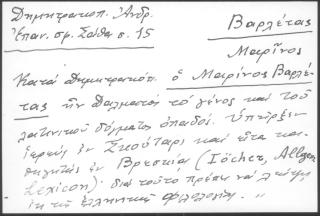 Δημητρακοπ. Ἀνδρ.
Ἐπαν. σφ. Σάθα σ. 15
Βαρλέτας
Μαρῖνος
Κατὰ Δημητρακόπ. ὁ Μαρῖνος Βαρλέ-
τας ἦν Δαλματὸς τὸ γένος καὶ τοῦ
λατινικοῦ δόγματος ὀπαδός. Ὑπῆρξεν
ἱερεὺς ἐν Σκούταρι καὶ εἶτα κα-
θηγητὴς ἐν Βρεσκίᾳ (Jöcher, Allgem.
Lexicon)· διὰ τοῦτο πρέπει νὰ λείψῃ
ἐκ τῆς ἑλληνικῆς φιλολογίας. "